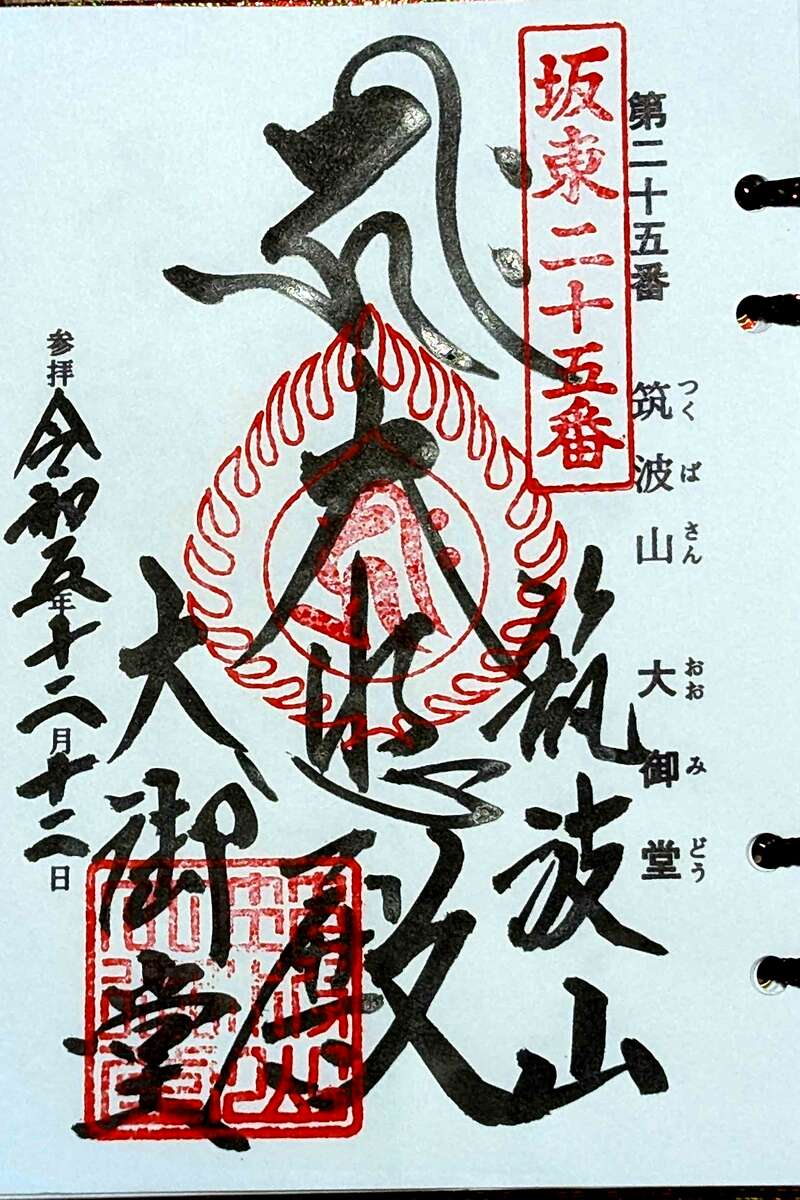 第二十五番 筑波山 大御堂
つくばさん おおみどう
坂東二十五番
筑波山
大悲殿
大御堂
参拝 令和五年十二月十二日